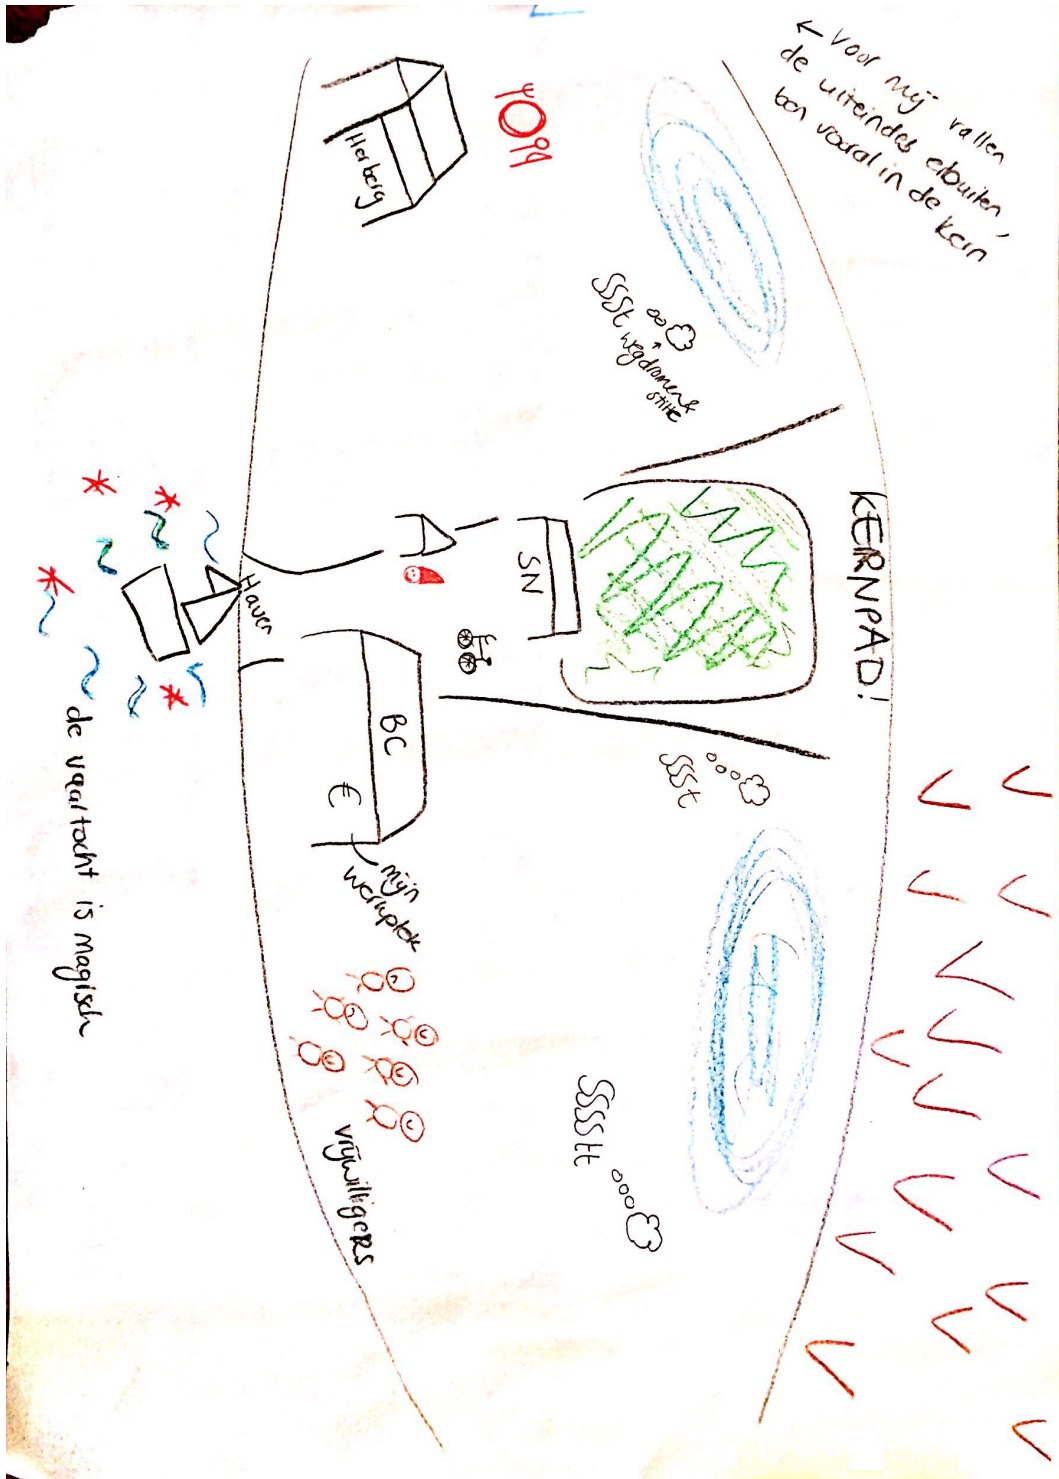 ← Voor mij vallen
de uiteindes erbuiten,
ben vooral in de kern
Herberg
SSSt
wegdromen &
stilte
KERNPAD!
SN
Haven
BC
€
mijn
werkplek
SSSt
SSSSStt
vrijwilligers
de vaartocht is magisch